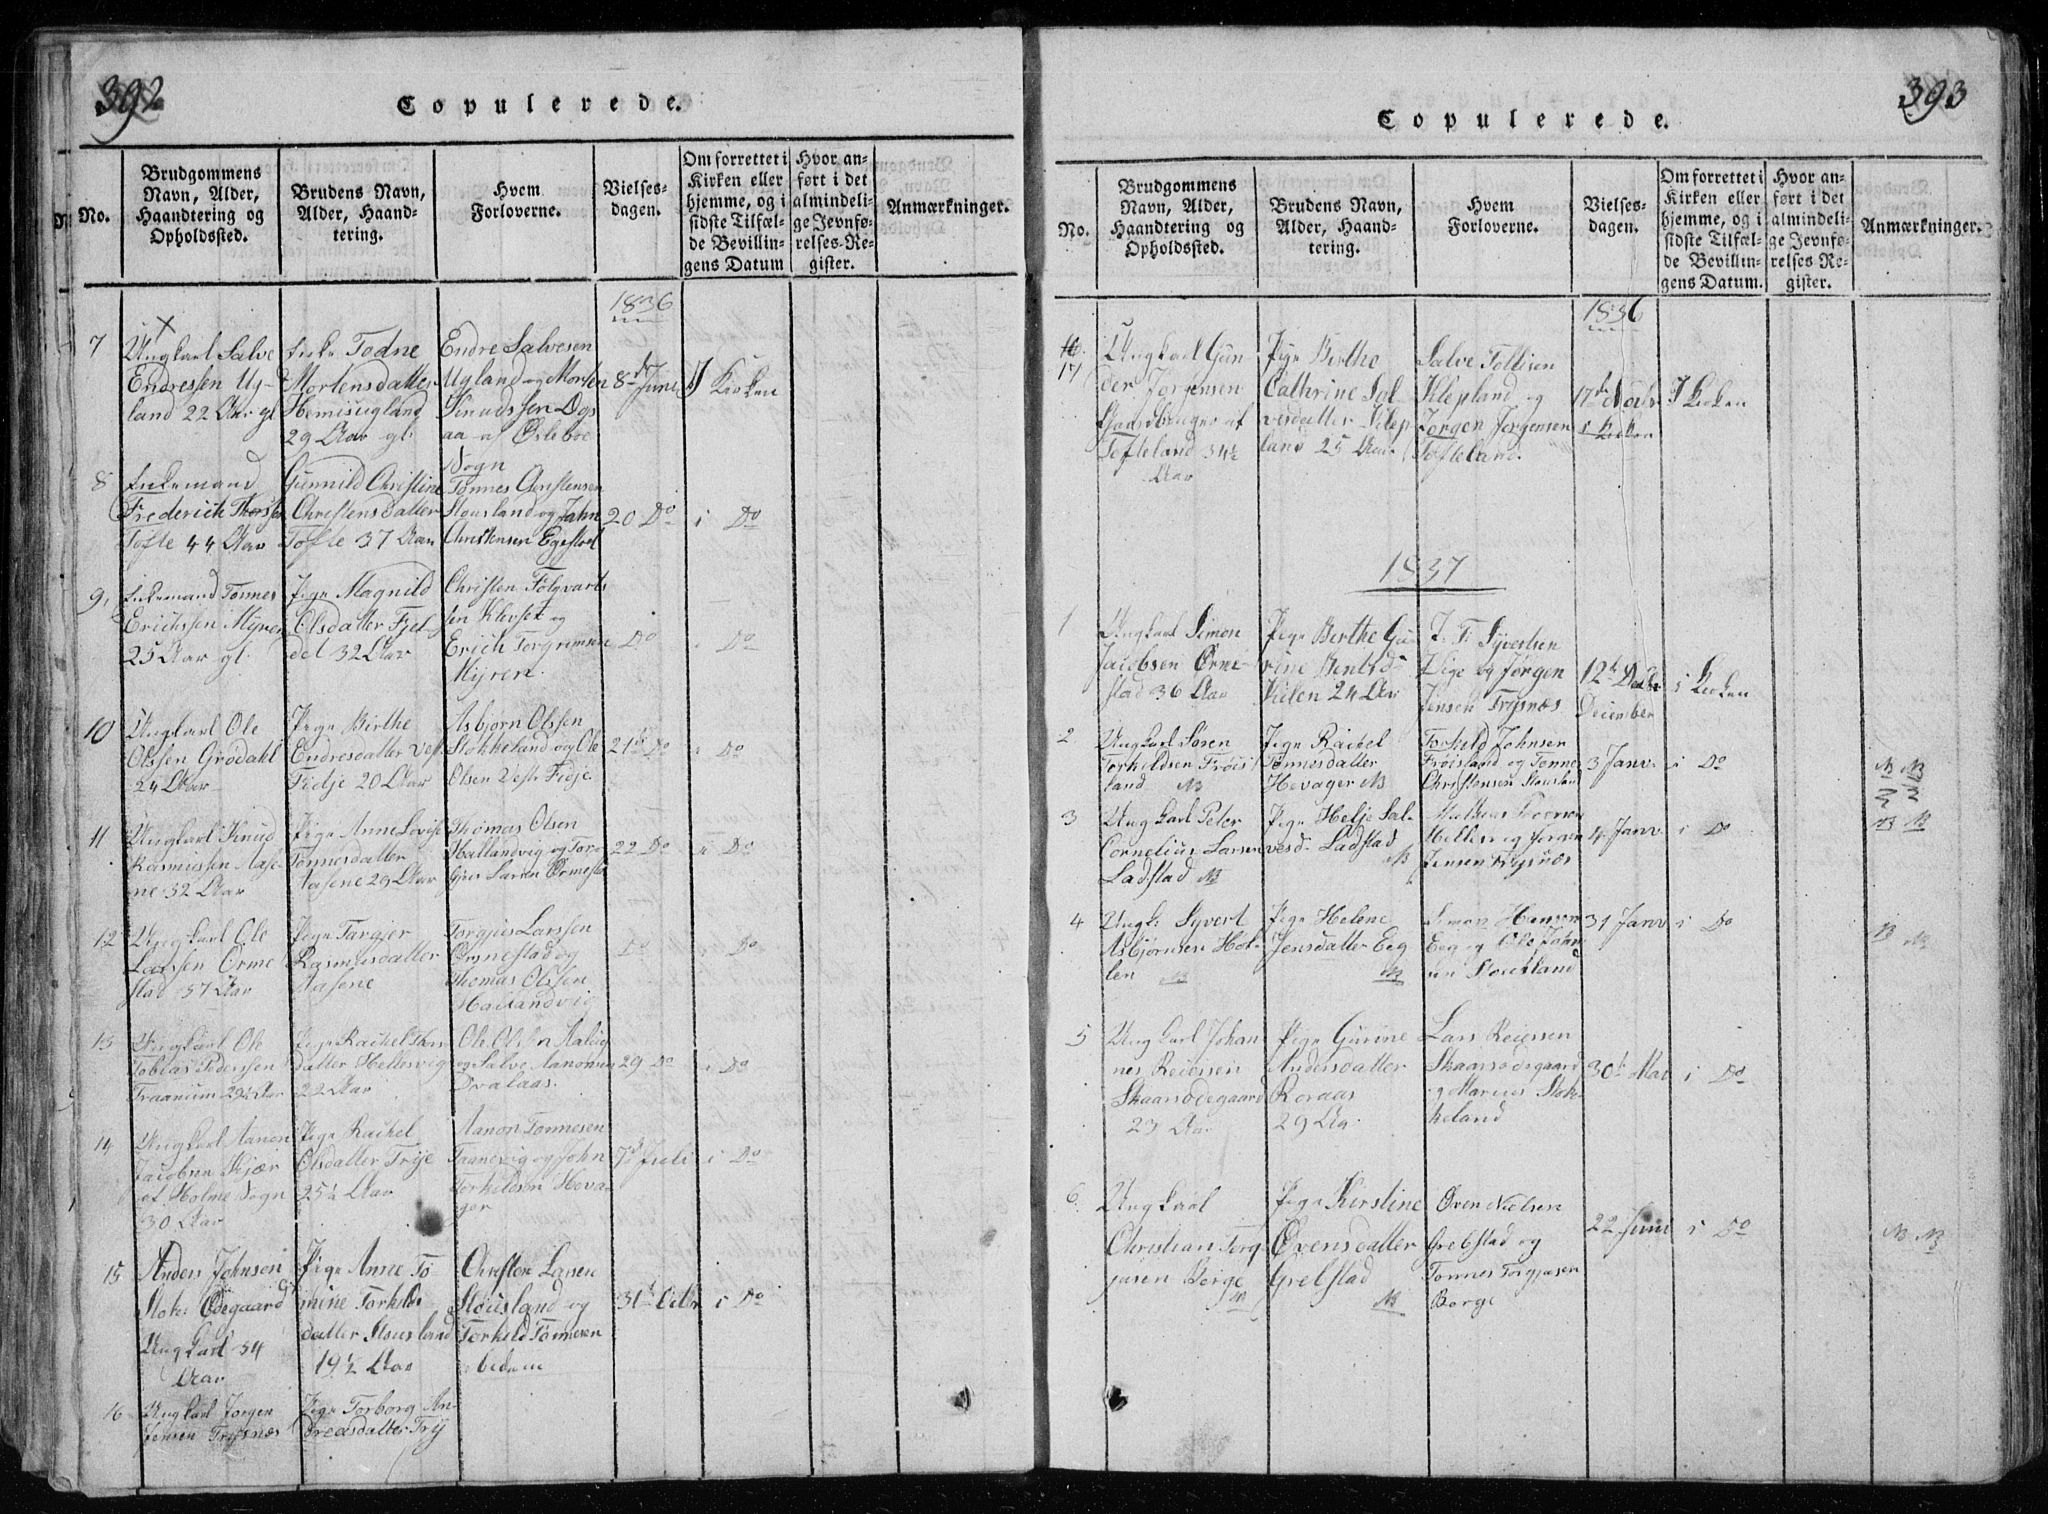 392
Copulerede.
No.
Brudgommens Navn, Alder, Haandtering og Opholdssted.
Brudens Navn, Alder, Haandtering.
Hvem Forloverne.
Vielses-dagen.
Om forrettet i Kirken eller hjemme, og i sidste Tilfælde Bevillingens Datum
Hvor anført i det almindelige Jevnførelses-Register.
Anmærkninger.
1836
7
Ungkarl Salve
Endressen Ug-
land 22 Aar gl.
Enke Todne
Mortensdatter
29 Aar gl.
Endre Salvesen
Ugland og Morten
Knudssen
aa af Øslebøe
Sogn
8de Juni
I Kirken
8
Enkemand
Frederich
Tofte 44 Aar
Gunnild Christine
Christensdatter
Tofte 37 Aar
Tønnes Christensen
Stousland og John
Christensen Egestøl
20 Do
i Do
9
Enkemand Tønnes
Erichssen Myren
25 Aar gl.
Pige Magnild
Olsdatter Fjel-
del 32 Aar
Christen Folqvarts
sen Klevset og
Erich Torgrimsen
Myren.
Do
" Do
10
Ungkarl Ole
Olssen Grødahl
24 Aar
Pige Birthe
Endresdatter Vest
Fidje 20 Aar
Asbjørn Olssen
Stokkeland og Ole
Olsen Vest Fidje
21de Do
" Do
11
Ungkarl Knud
Rasmussen Aase-
ne 32 Aar
Pige Anne Lovise
Tønnesdatter
Aasene 29 Aar
Thomas Olsen
Hallandvig og Tor-
gius Larsen Ørmesta
22 Do
" Do
12
Ungkarl Ole
Larssen Ørme
stad 37 Aar
Pige Targjer
Rasmusdatter
Aasene
Torgjus Larssen
Ørmestad og
Thomas Olssen
Hallandvig
Do
" Do
13
Ungkarl Ole
Tobias Pederssen
Traanum 29½ Aar
Pige Rachel
datter Hellesvig
22 Aar
Ole Olsen
og Salve Aanonsen
Dvalaas.
29 Do
i Do
14
Ungkarl Aanon
Jacobsen Kjær
af Holme Sogn
30 Aar
Pige Rachel
Olsdatter Frije
25½ Aar
Aanon Tønnesen
og John
Torkildsen Høva-
ger
7de Juli
i Do
15
Anders Johnsen
Stok: Ødegaard
Ungkarl 34
Aar
Pige Anne To-
mine Torkilds
datter Stousland
19½ Aar
Christen Larsen
Stousland og
Torkild Tønnesen
ibidem
31te Octbr
i Do
16
Ungkarl Jørgen
Jensen Trysnæs
Pige Torborg An-
dreasdatter Try
393
Copulerede.
No.
Brudgommens Navn, Alder, Haandtering og Opholdssted.
Brudens Navn, Alder, Haandtering.
Hvem Forloverne.
Vielses-dagen.
Om forrettet i Kirken eller hjemme, og i sidste Tilfælde Bevillingens Datum.
Hvor anført i det almindelige Jevnførelses-Register.
Anmærkninger.
1836
16.
17
Ungkarl Gun-
der Jørgensen
Gaardbruger af
Tofteland 34½
Aar
Pige Birthe
Cathrine Sal
vesdatter Klep
land 25 Aar
Salve Tollisen
Klepland og
Jørgen Jørgensen
Tofteland.
17de Novbr
i Kirken
I Kirken
1837
1
Ungkarl Simon
Jacobsen Ørme-
stad 36 Aar
Pige Berthe Gu-
rine
Kilen 24 Aar
J. F. Syvertsen
Vige og Jørgen
Jensen Trysnæs
12te
December
i Kirken
2
Ungkarl Søren
Torkildsen Frøis
land NB
Pige Rachel
Tønnesdatter
Høvager NB
Torkeld Johnsen
Frøisland og Tønne
Christensen Stousland
3 Janv.
i Do
NB NB
3
Ungkarl Peter
Cornelius Larsen
Ladstad NB
Pige Helje Sal-
vesd. Ladstad
NB
og Jørgen
Jensen Trysnæs
4 Janv.
i Do
NB NB
4
Ungk: Syvert
Asbjørnsen Hol-
len NB
Pige Helene
Jensdatter Eeg
NB
Simon Hansen
Eeg og Ole John
Stousland
31 Janv
i Do
NB NB
5
Ungkarl Johan
nes Reierssen
Skaarsødegaard
23 Aar
Pige Gurine
Andersdatter
Roraas
29 Aa.
Lars Reierssen
Skaarsødegaard
og Marcus Stok-
keland
30te Mai
i Do
6.
Ungkarl
Christian Torg-
jusen Borge
NB
Pige Kirstine
Øvensdatter
Grebstad
NB
Øven Nielsen
Grebstad og
Tønnes Torgjusen
Borge
22 Juni
i Do
NB NB